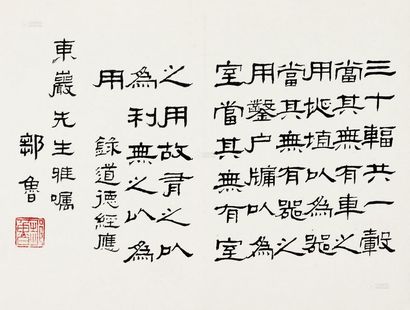 三十輻共一轂
當其無有車之
用埏埴以為器
當其無有器之
用鑿户牖以為
室當其無有室
之用故有之以
為利無之以為
用 錄道德經應
東巖先生雅嘱
鄒魯